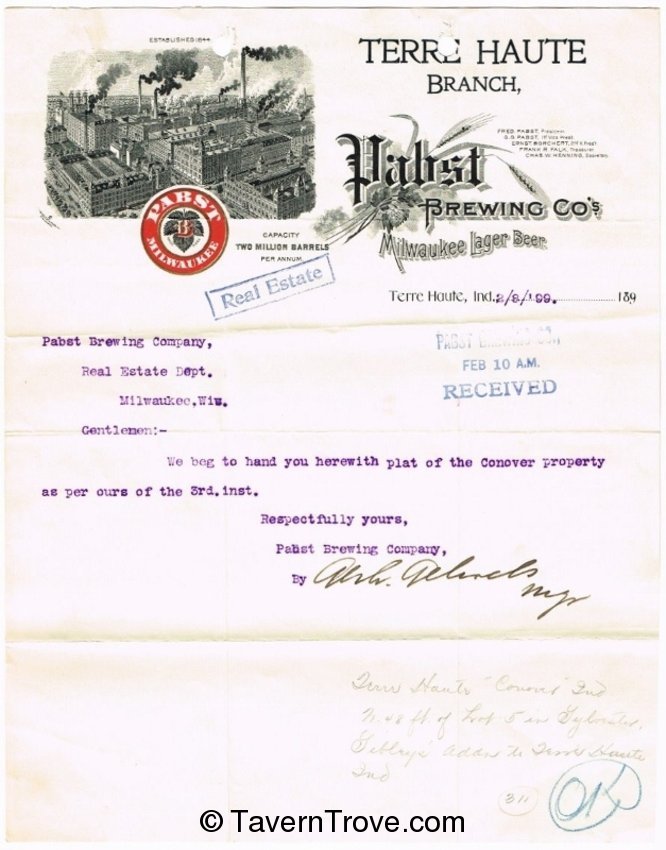 ESTABLISHED 1844
TERRE HAUTE
BRANCH,
FRED. PABST, President
G.G. PABST, 1st Vice Prest.
ERNST BORCHERT, 2nd V. Prest.
FRANK R. FALK, Treasurer
CHAS. W. HENNING, Secretary.
Pabst
BREWING CO'S
Milwaukee Lager Beer
PABST
B
MILWAUKEE
CAPACITY
TWO MILLION BARRELS
PER ANNUM.
Real Estate
Terre Haute, Ind. 2/8/'99. 189
PABST BREWING CO.
FEB 10 A.M.
RECEIVED
Pabst Brewing Company,
Real Estate Dept.
Milwaukee, Wis.
Gentlemen:-
We beg to hand you herewith plat of the Conover property
as per ours of the 3rd. inst.
Respectfully yours,
Pabst Brewing Company,
By
Mgr
Terre Haute "Conover" Ind
N. 48 ft of Lot 5 in Sylvester
Sibleys Addn to Terre Haute
Ind
311
OK
© TavernTrove.com